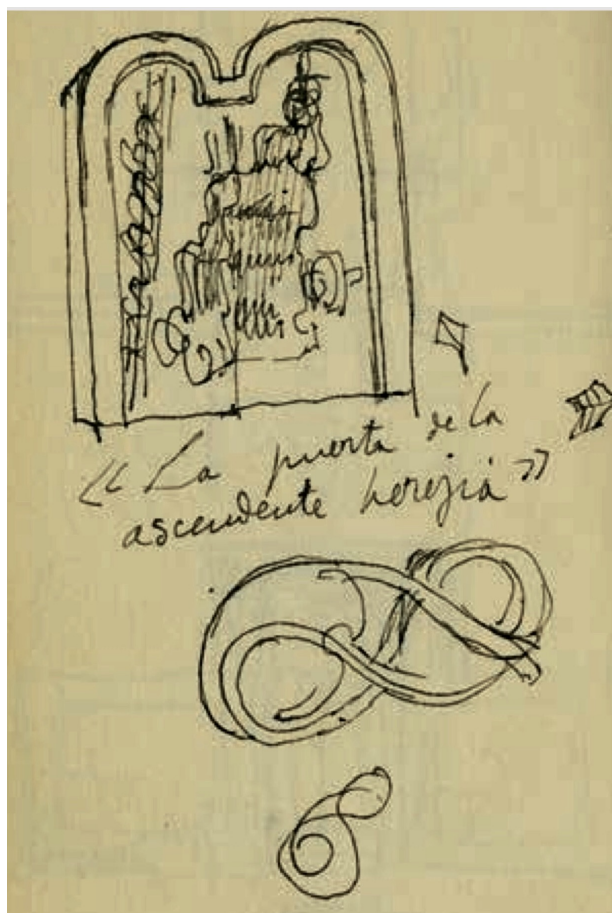 «La puerta de la
ascendente herejía»